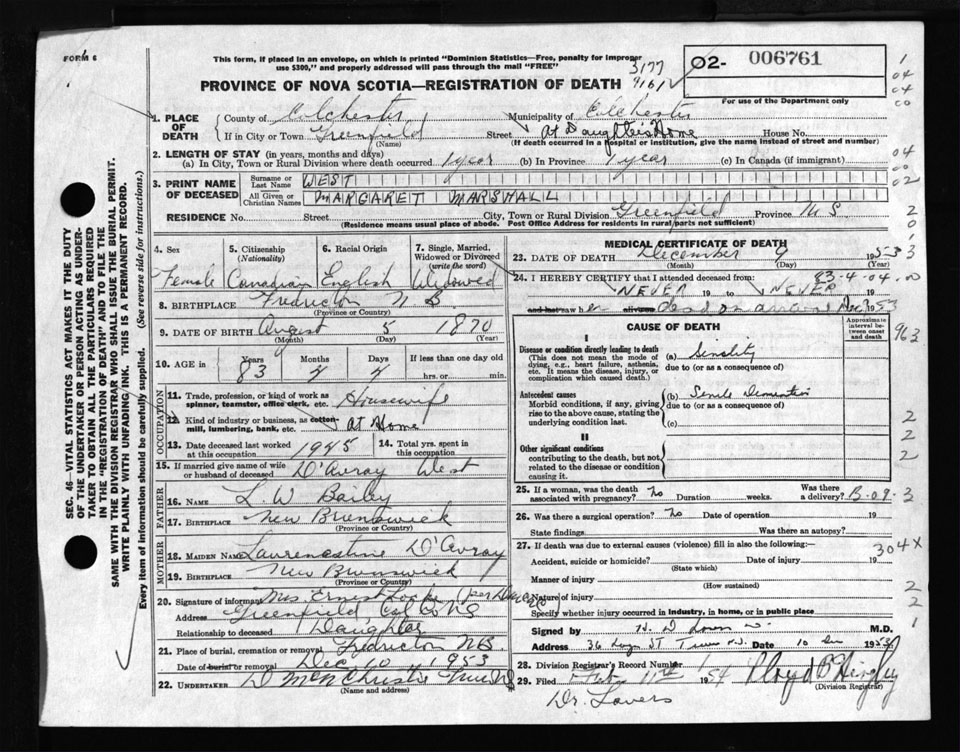 FORM 6
This form, if placed in an envelope, on which is printed "Dominion Statistics—Free, penalty for improper
use $300," and properly addressed will pass through the mail "FREE"
3177
9161
02- 006761
For use of the Department only
PROVINCE OF NOVA SCOTIA—REGISTRATION OF DEATH
1. PLACE OF DEATH
County of Colchester Municipality of Colchester
If in City or Town Greenfield Street At Daughter's Home House No.
(Name) (If death occurred in a hospital or institution, give the name instead of street and number)
2. LENGTH OF STAY (in years, months and days)
(a) In City, Town or Rural Division where death occurred 1 year (b) In Province 1 year (c) In Canada (if immigrant)
3. PRINT NAME OF DECEASED
Surname or Last Name WEST
All Given or Christian Names MARGARET MARSHALL
RESIDENCE No. Street City, Town or Rural Division Greenfield Province N S
(Residence means usual place of abode. Post Office Address for residents in rural parts not sufficient)
4. Sex Female
5. Citizenship (Nationality) Canadian
6. Racial Origin English
7. Single, Married, Widowed or Divorced (write the word) Widowed
8. BIRTHPLACE Fredricton N B
(Province or Country)
9. DATE OF BIRTH August 5 1870
(Month) (Day) (Year)
10. AGE in Years 83 Months 4 Days 4 If less than one day old
hrs. or min.
OCCUPATION
11. Trade, profession, or kind of work as spinner, teamster, office clerk, etc. Housewife
12. Kind of industry or business, as cotton mill, lumbering, bank, etc. At Home
13. Date deceased last worked at this occupation 1945
14. Total yrs. spent in this occupation
15. If married give name of wife or husband of deceased D'Avray West
FATHER
16. NAME L. W Bailey
17. BIRTHPLACE New Brunswick
MOTHER
18. MAIDEN NAME Laurenestine D'Avray
19. BIRTHPLACE New Brunswick
(Province or Country)
20. Signature of informant Mrs Ernest Locke
Address Greenfield Col Co NS
Relationship to deceased Daughter
21. Place of burial, cremation or removal Fredricton NB.
Date of burial or removal Dec 10 1953
22. UNDERTAKER D McN Christie Truro NS
(Name and address)
MEDICAL CERTIFICATE OF DEATH
23. DATE OF DEATH December 9 1953
(Month) (Day) (Year)
24. I HEREBY CERTIFY that I attended deceased from: 83-4-04
NEVER 19 to NEVER 19
and last saw her alive on dead on arrival Dec 9 53
CAUSE OF DEATH
Approximate interval between onset and death
I
Disease or condition directly leading to death (a) Senility
(This does not mean the mode of dying, e.g., heart failure, asthenia, etc. It means the disease, injury, or complication which caused death.
due to (or as a consequence of)
Antecedent causes (b) Senile Dementia
Morbid conditions, if any, giving rise to the above cause, stating the underlying condition last.
due to (or as a consequence of)
(c)
II
Other significant conditions
contributing to the death, but not related to the disease or condition causing it.
25. If a woman, was the death associated with pregnancy? No Duration weeks. Was there a delivery?
26. Was there a surgical operation? No Date of operation 19
State findings Was there an autopsy?
27. If death was due to external causes (violence) fill in also the following:
304X
Accident, suicide or homicide? Date of injury 19
(State which)
Manner of injury
(How sustained)
Nature of injury
Specify whether injury occurred in industry, in home, or in public place
Signed by M.D.
Address Truro N.S. Date 10 Dec 1953
28. Division Registrar's Record Number 1
29. Filed 11th 1954 Lloyd B Hingley
(Division Registrar)
Dr. Lavers
SEC. 46—VITAL STATISTICS ACT MAKES IT THE DUTY
OF THE UNDERTAKER OR PERSON ACTING AS UNDERTAKER
TO OBTAIN ALL THE PARTICULARS REQUIRED
IN THE "REGISTRATION OF DEATH" AND TO FILE THE
SAME WITH THE DIVISION REGISTRAR WHO SHALL ISSUE THE BURIAL PERMIT.
WRITE PLAINLY WITH UNFADING INK. THIS IS A PERMANENT RECORD.
Every item of information should be carefully supplied. (See reverse side for instructions.)